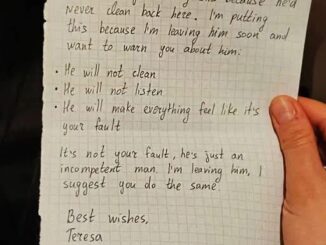 because he'd
never clean back here. I'm putting
this because I'm leaving him soon and
want to warn you about him:
• He will not clean
• He will not listen
• He will make everything feel like it's
your fault
It's not your fault, he's just an
incompetent man. I'm leaving him, I
suggest you do the same
Best wishes,
Teresa